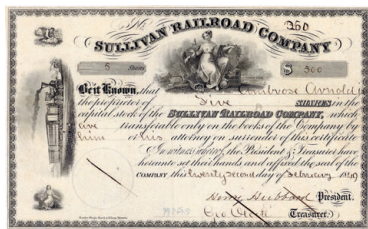 No. 360
SULLIVAN RAILROAD COMPANY
5 Shares $ 500
Be it Known, that Ambrose Arnold is
the proprietor of Five SHARES in the
capital stock of the SULLIVAN RAILROAD COMPANY, which
are transferable only on the books of the Company by
him or his attorney on surrender of this certificate
In witness whereof, the President & Treasurer have
hereunto set their hands and affixed the seal of the
COMPANY this twenty second day of February
President.
Geo. Treasurer.